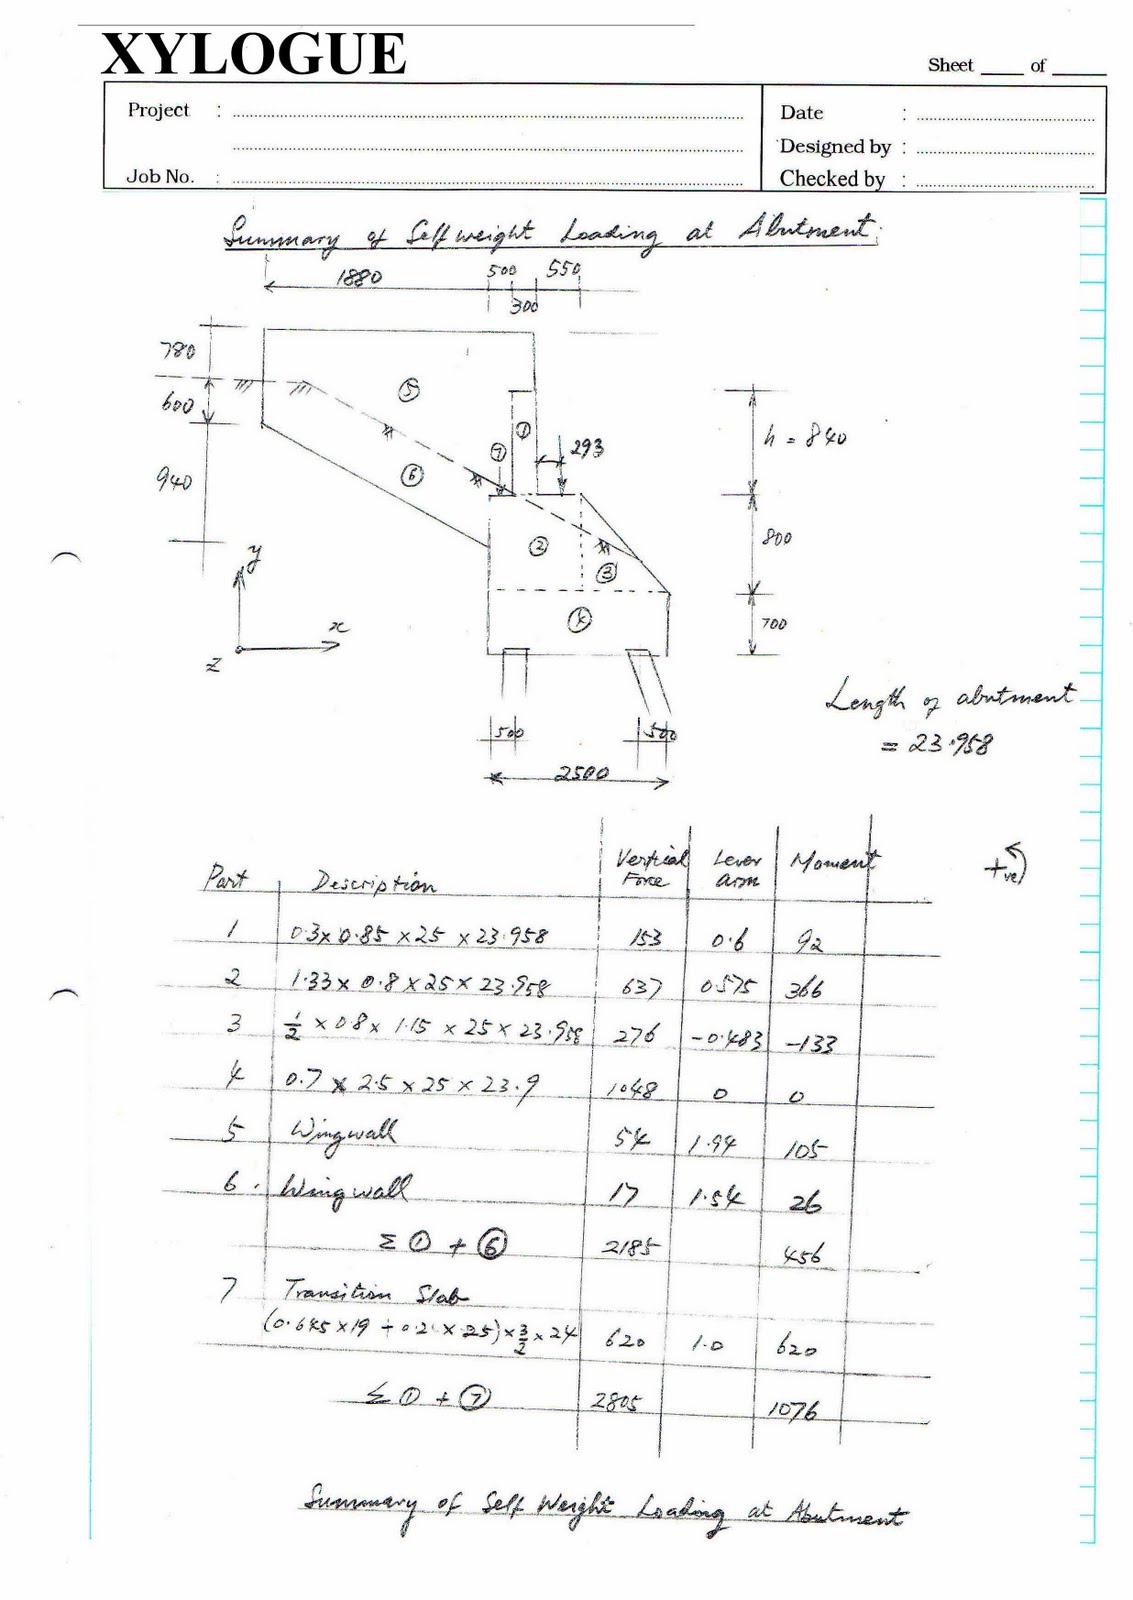 XYLOGUE
Sheet ____ of ____
Project :
Date :
Designed by :
Job No. :
Checked by :
Summary of Selfweight Loading at Abutment
1880 500 550
300
780
600
940
5
1
7
293
6
2
3
4
h = 840
800
700
y
x
z
500 500
2500
Length of abutment
= 23.958
+ve
Part Description Vertical Force Lever arm Moment
1 0.3 x 0.85 x 25 x 23.958 153 0.6 92
2 1.33 x 0.8 x 25 x 23.958 637 0.575 366
3 1/2 x 0.8 x 1.15 x 25 x 23.958 276 -0.483 -133
4 0.7 x 2.5 x 25 x 23.9 1048 0 0
5 Wingwall 54 1.94 105
6. Wingwall 17 1.54 26
Σ ① + ⑥ 2185 456
7 Transition Slab
(0.645 x 19 + 0.2 x 25) x 3/2 x 24 620 1.0 620
Σ ① + ⑦ 2805 1076
Summary of Self Weight Loading at Abutment